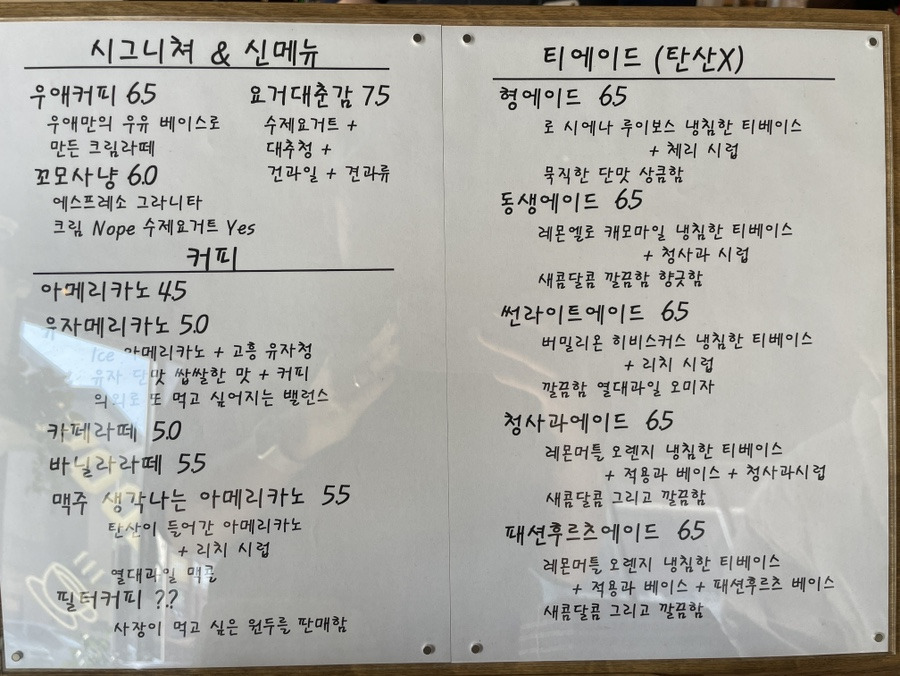 시그니쳐 & 신메뉴
우애커피 6.5
우애만의 우유 베이스로
만든 크림라떼
꼬모사냥 6.0
에스프레소 그라니타
크림 Nope 수제요거트 Yes
요거대춘감 7.5
수제요거트 +
대추청 +
건과일 + 견과류
커피
아메리카노 4.5
유자메리카노 5.0
Ice 아메리카노 + 고흥 유자청
유자 단맛 쌉쌀한 맛 + 커피
의외로 또 먹고 싶어지는 밸런스
카페라떼 5.0
바닐라라떼 5.5
맥주 생각나는 아메리카노 5.5
탄산이 들어간 아메리카노
+ 리치 시럽
열대과일 맥콜
필터커피 ??
사장이 먹고 싶은 원두를 판매함
티에이드 (탄산X)
형에이드 6.5
로 시에나 루이보스 냉침한 티베이스
+ 체리 시럽
묵직한 단맛 상큼함
동생에이드 6.5
레몬옐로 캐모마일 냉침한 티베이스
+ 청사과 시럽
새콤달콤 깔끔함 향긋함
썬라이트에이드 6.5
버밀리온 히비스커스 냉침한 티베이스
+ 리치 시럽
깔끔함 열대과일 오미자
청사과에이드 6.5
레몬머틀 오렌지 냉침한 티베이스
+ 적용과 베이스 + 청사과시럽
새콤달콤 그리고 깔끔함
패션후르츠에이드 6.5
레몬머틀 오렌지 냉침한 티베이스
+ 적용과 베이스 + 패션후르츠 베이스
새콤달콤 그리고 깔끔함